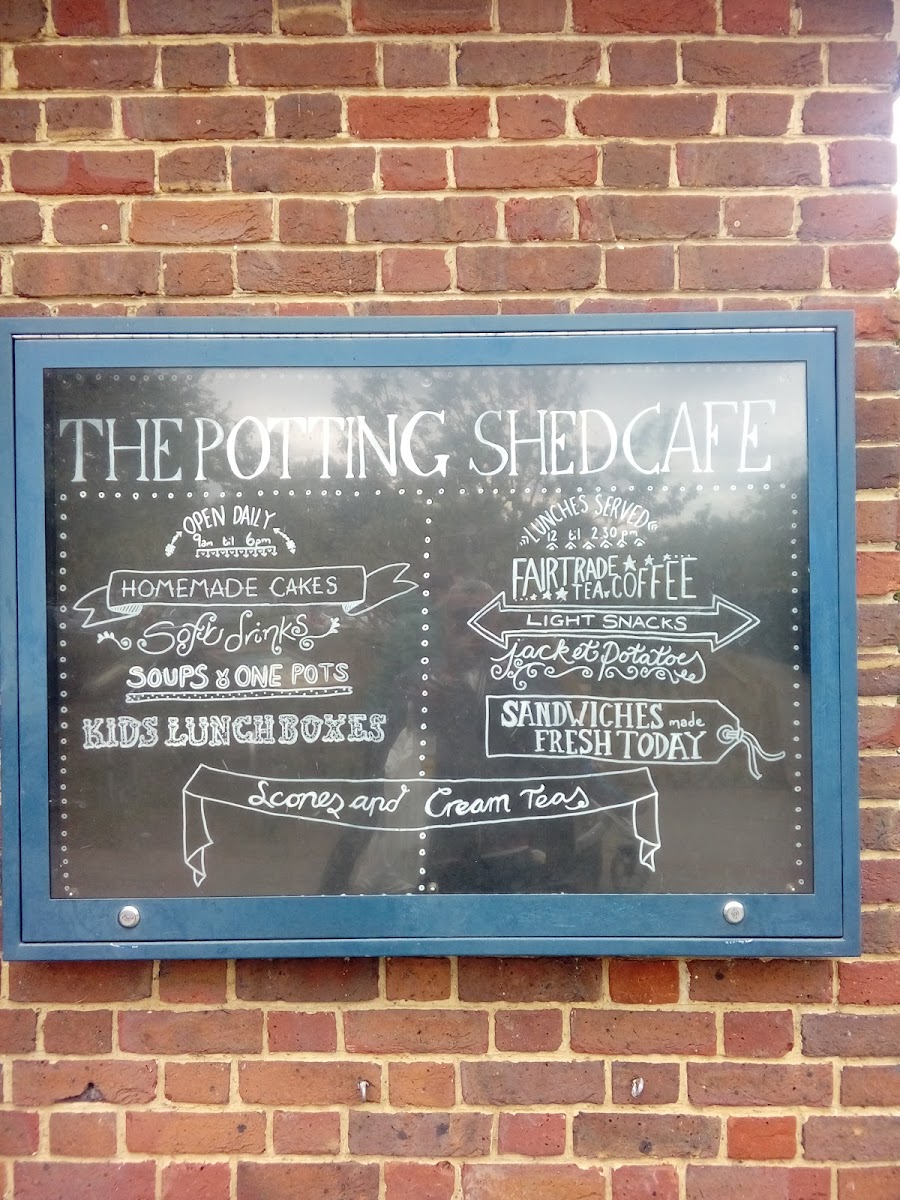 THE POTTING SHED CAFE
OPEN DAILY
9am til 6pm
HOMEMADE CAKES
Soft drinks
SOUPS & ONE POTS
KIDS LUNCHBOXES
LUNCHES SERVED
12 til 2.30 pm
FAIRTRADE
TEA & COFFEE
LIGHT SNACKS
jacket potatoes
SANDWICHES made
FRESH TODAY
Scones and Cream Teas